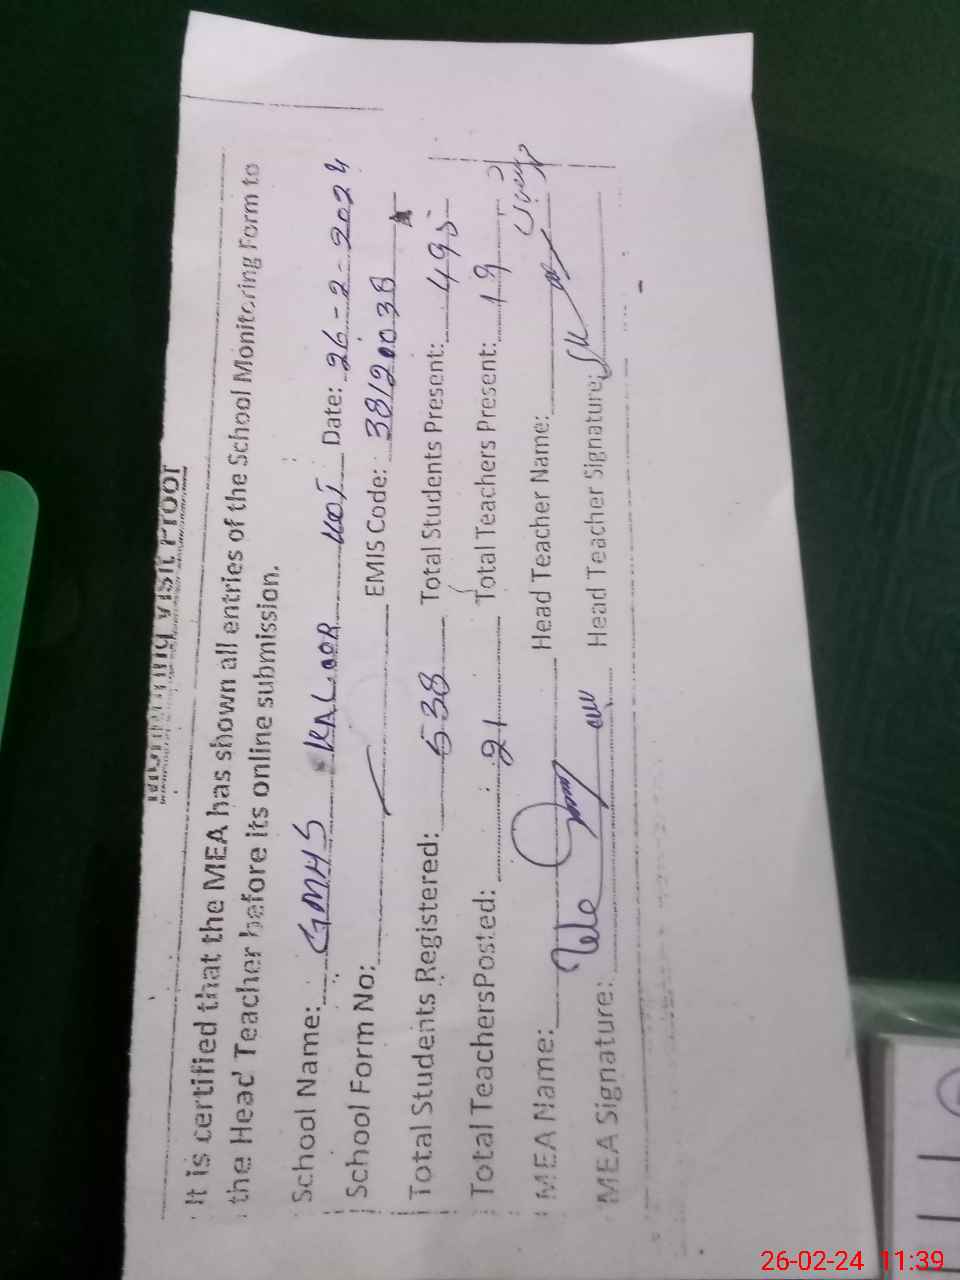 Monitoring Visit Proof
It is certified that the MEA has shown all entries of the School Monitoring Form to
the Head Teacher before its online submission.
School Name: GMHS KALOOR KOT Date: 26-2-2024
School Form No: EMIS Code: 38120038
Total Students Registered: 538 Total Students Present: 495
Total Teachers Posted: 21 Total Teachers Present: 19
MEA Name: Head Teacher Name:
MEA Signature: Head Teacher Signature:
26-02-24 11:39